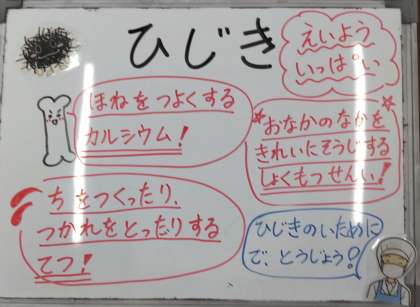 ひじき
えいよう
いっぱい
ほねをつよくする
カルシウム!
おなかのなかを
きれいにそうじする
しょくもつせんい!
ちをつくったり、
つかれをとったりする
てつ!
ひじきのいために
で、とうじょう!